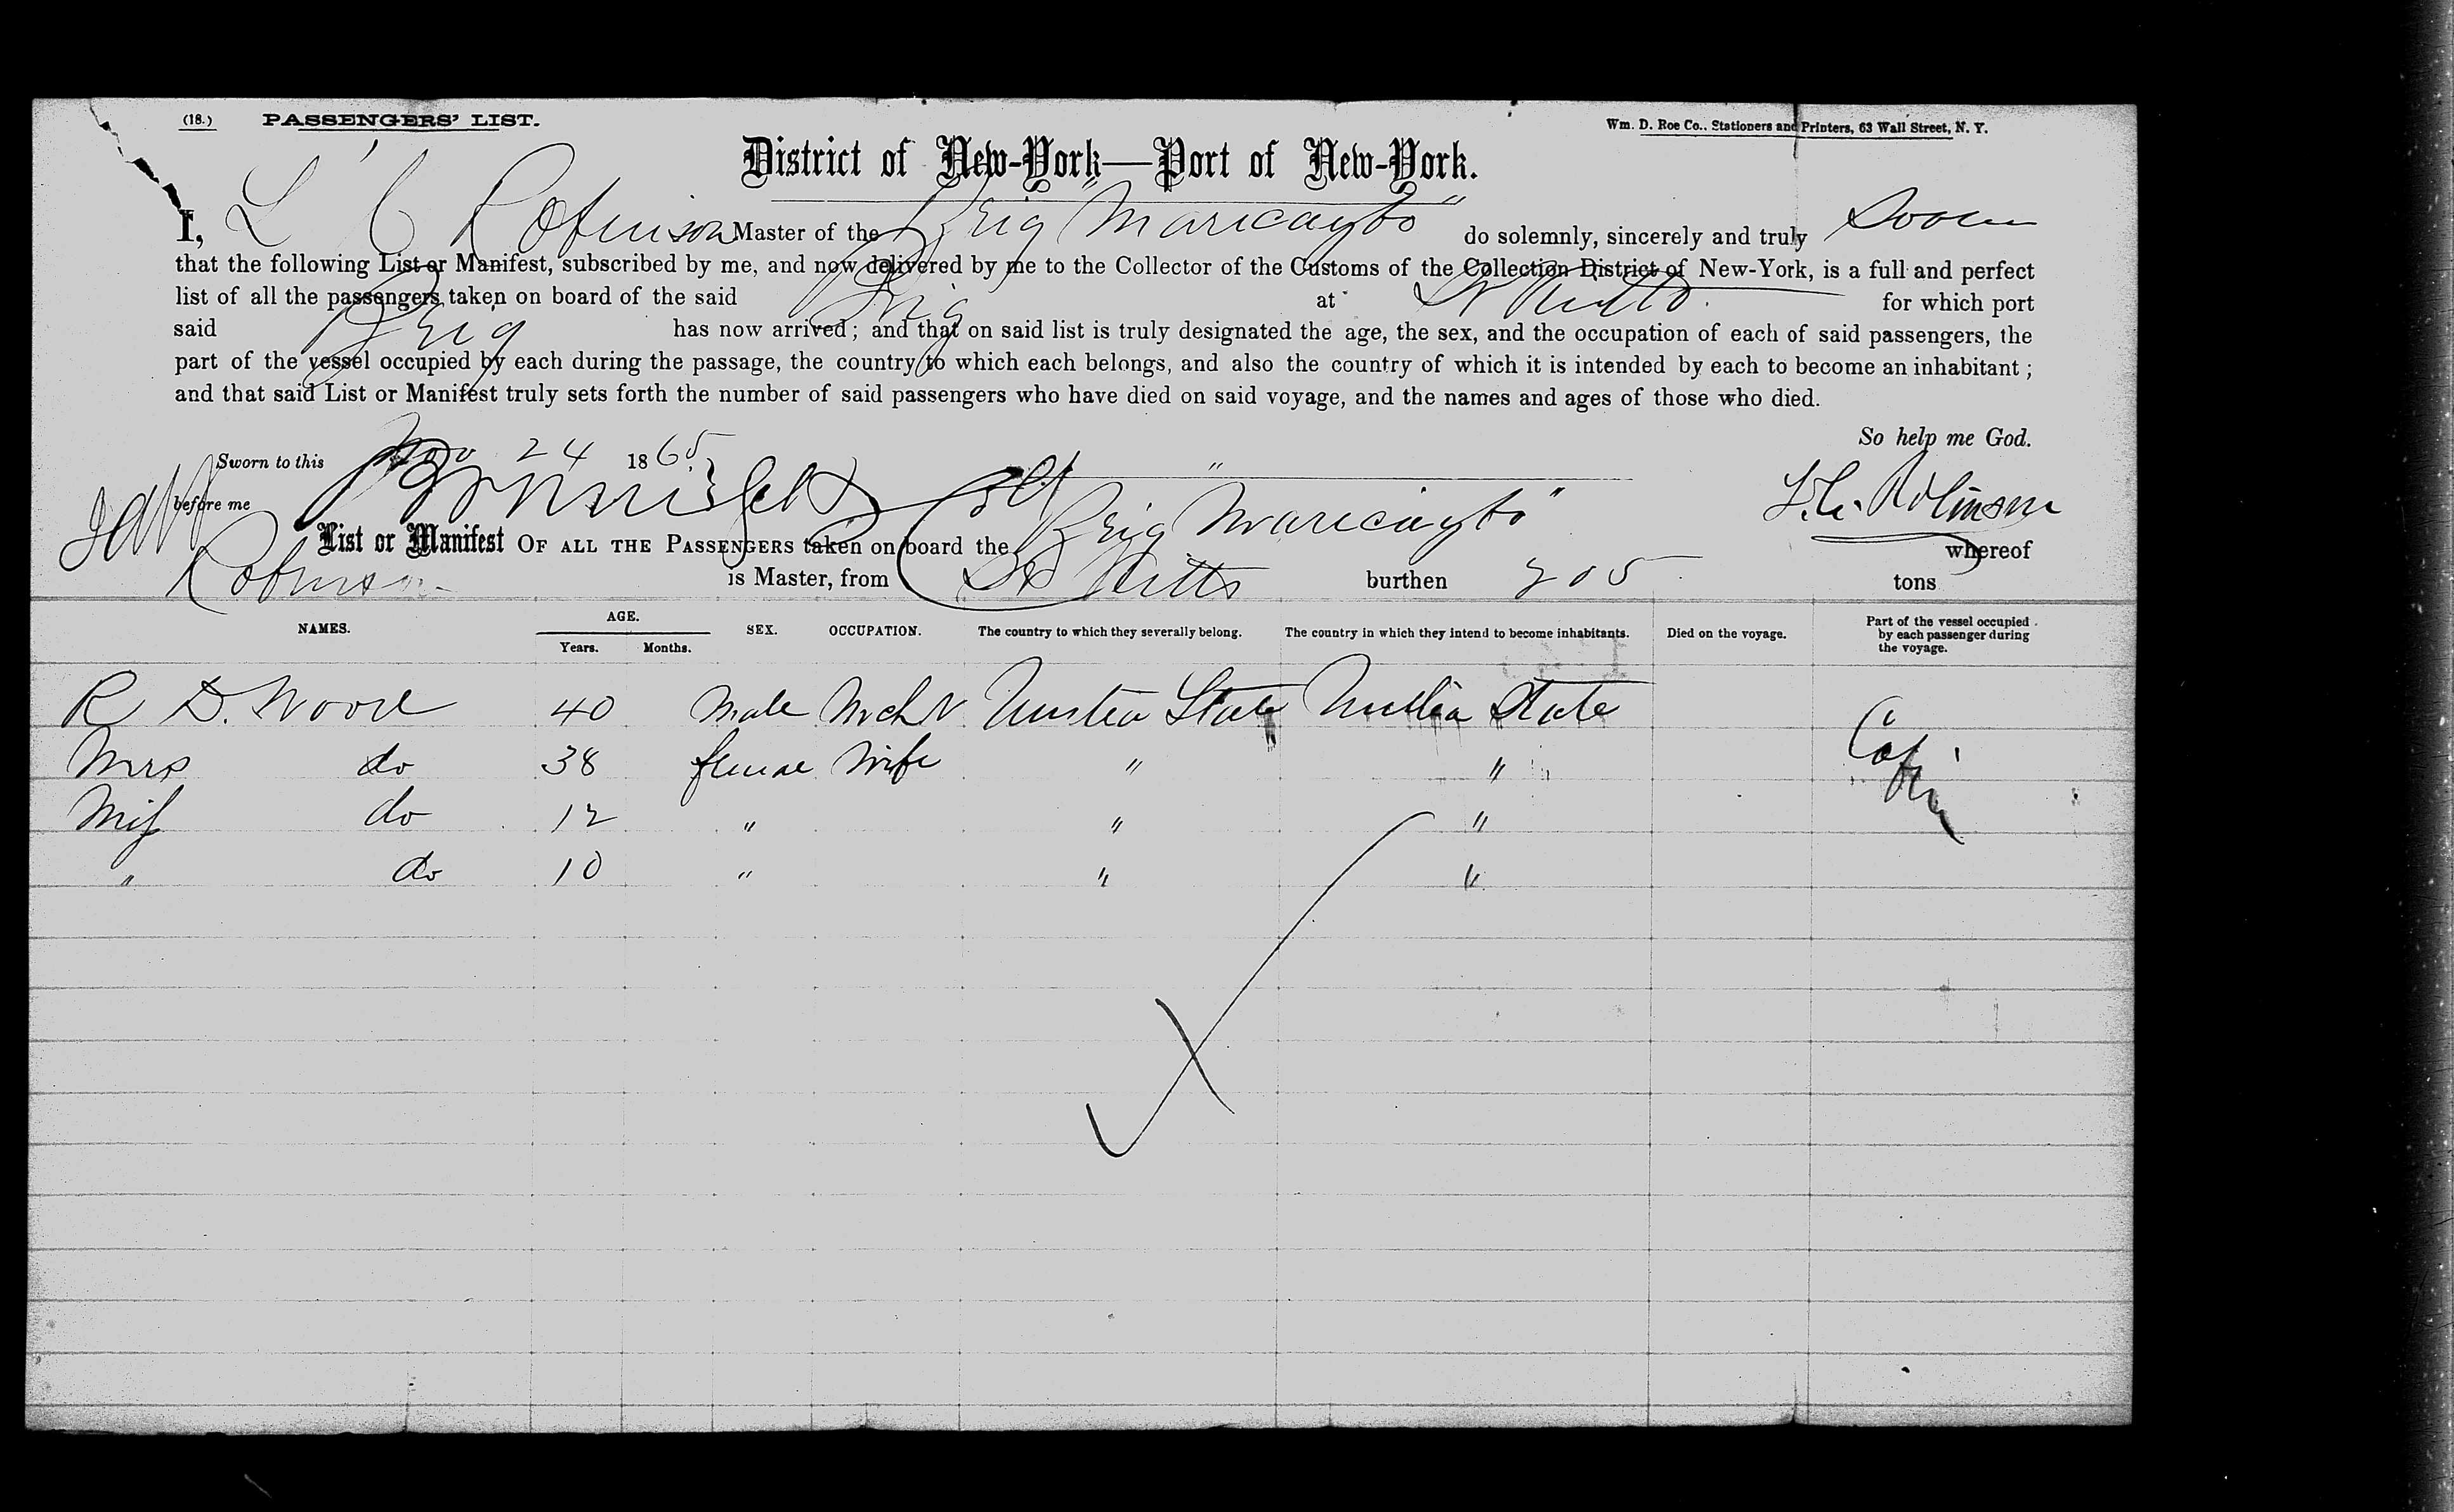 (18.) PASSENGERS' LIST.
Wm. D. Roe Co., Stationers and Printers, 63 Wall Street, N. Y.
District of New-York—Port of New-York.
I, L C Robinson Master of the Brig "Maricaybo" do solemnly, sincerely and truly Swear
that the following List or Manifest, subscribed by me, and now delivered by me to the Collector of the Customs of the Collection District of New-York, is a full and perfect
list of all the passengers taken on board of the said Brig at St Kitts for which port
said Brig has now arrived; and that on said list is truly designated the age, the sex, and the occupation of each of said passengers, the
part of the vessel occupied by each during the passage, the country to which each belongs, and also the country of which it is intended by each to become an inhabitant;
and that said List or Manifest truly sets forth the number of said passengers who have died on said voyage, and the names and ages of those who died.
So help me God.
Sworn to this Nov 24 1865
before me
L. C. Robinson
List or Manifest OF ALL THE PASSENGERS taken on board the Brig "Maricaybo" whereof
Robinson is Master, from St Kitts burthen 205 tons
NAMES. AGE. Years. Months. SEX. OCCUPATION. The country to which they severally belong. The country in which they intend to become inhabitants. Died on the voyage. Part of the vessel occupied by each passenger during the voyage.
R D. Wood 40 Male Mcht United State United State Cabin
Mrs do 38 female Wife " "
Miss do 12 " " "
" do 10 " " "